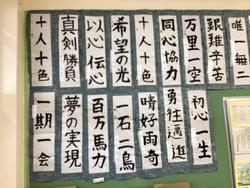 唯一無二
艱難辛苦
万里一空
同心協力
十人十色
希望の光
以心伝心
真剣勝負
十人十色
初心一生
勇往邁進
晴好雨奇
一石二鳥
百万馬力
夢の実現
一期一会